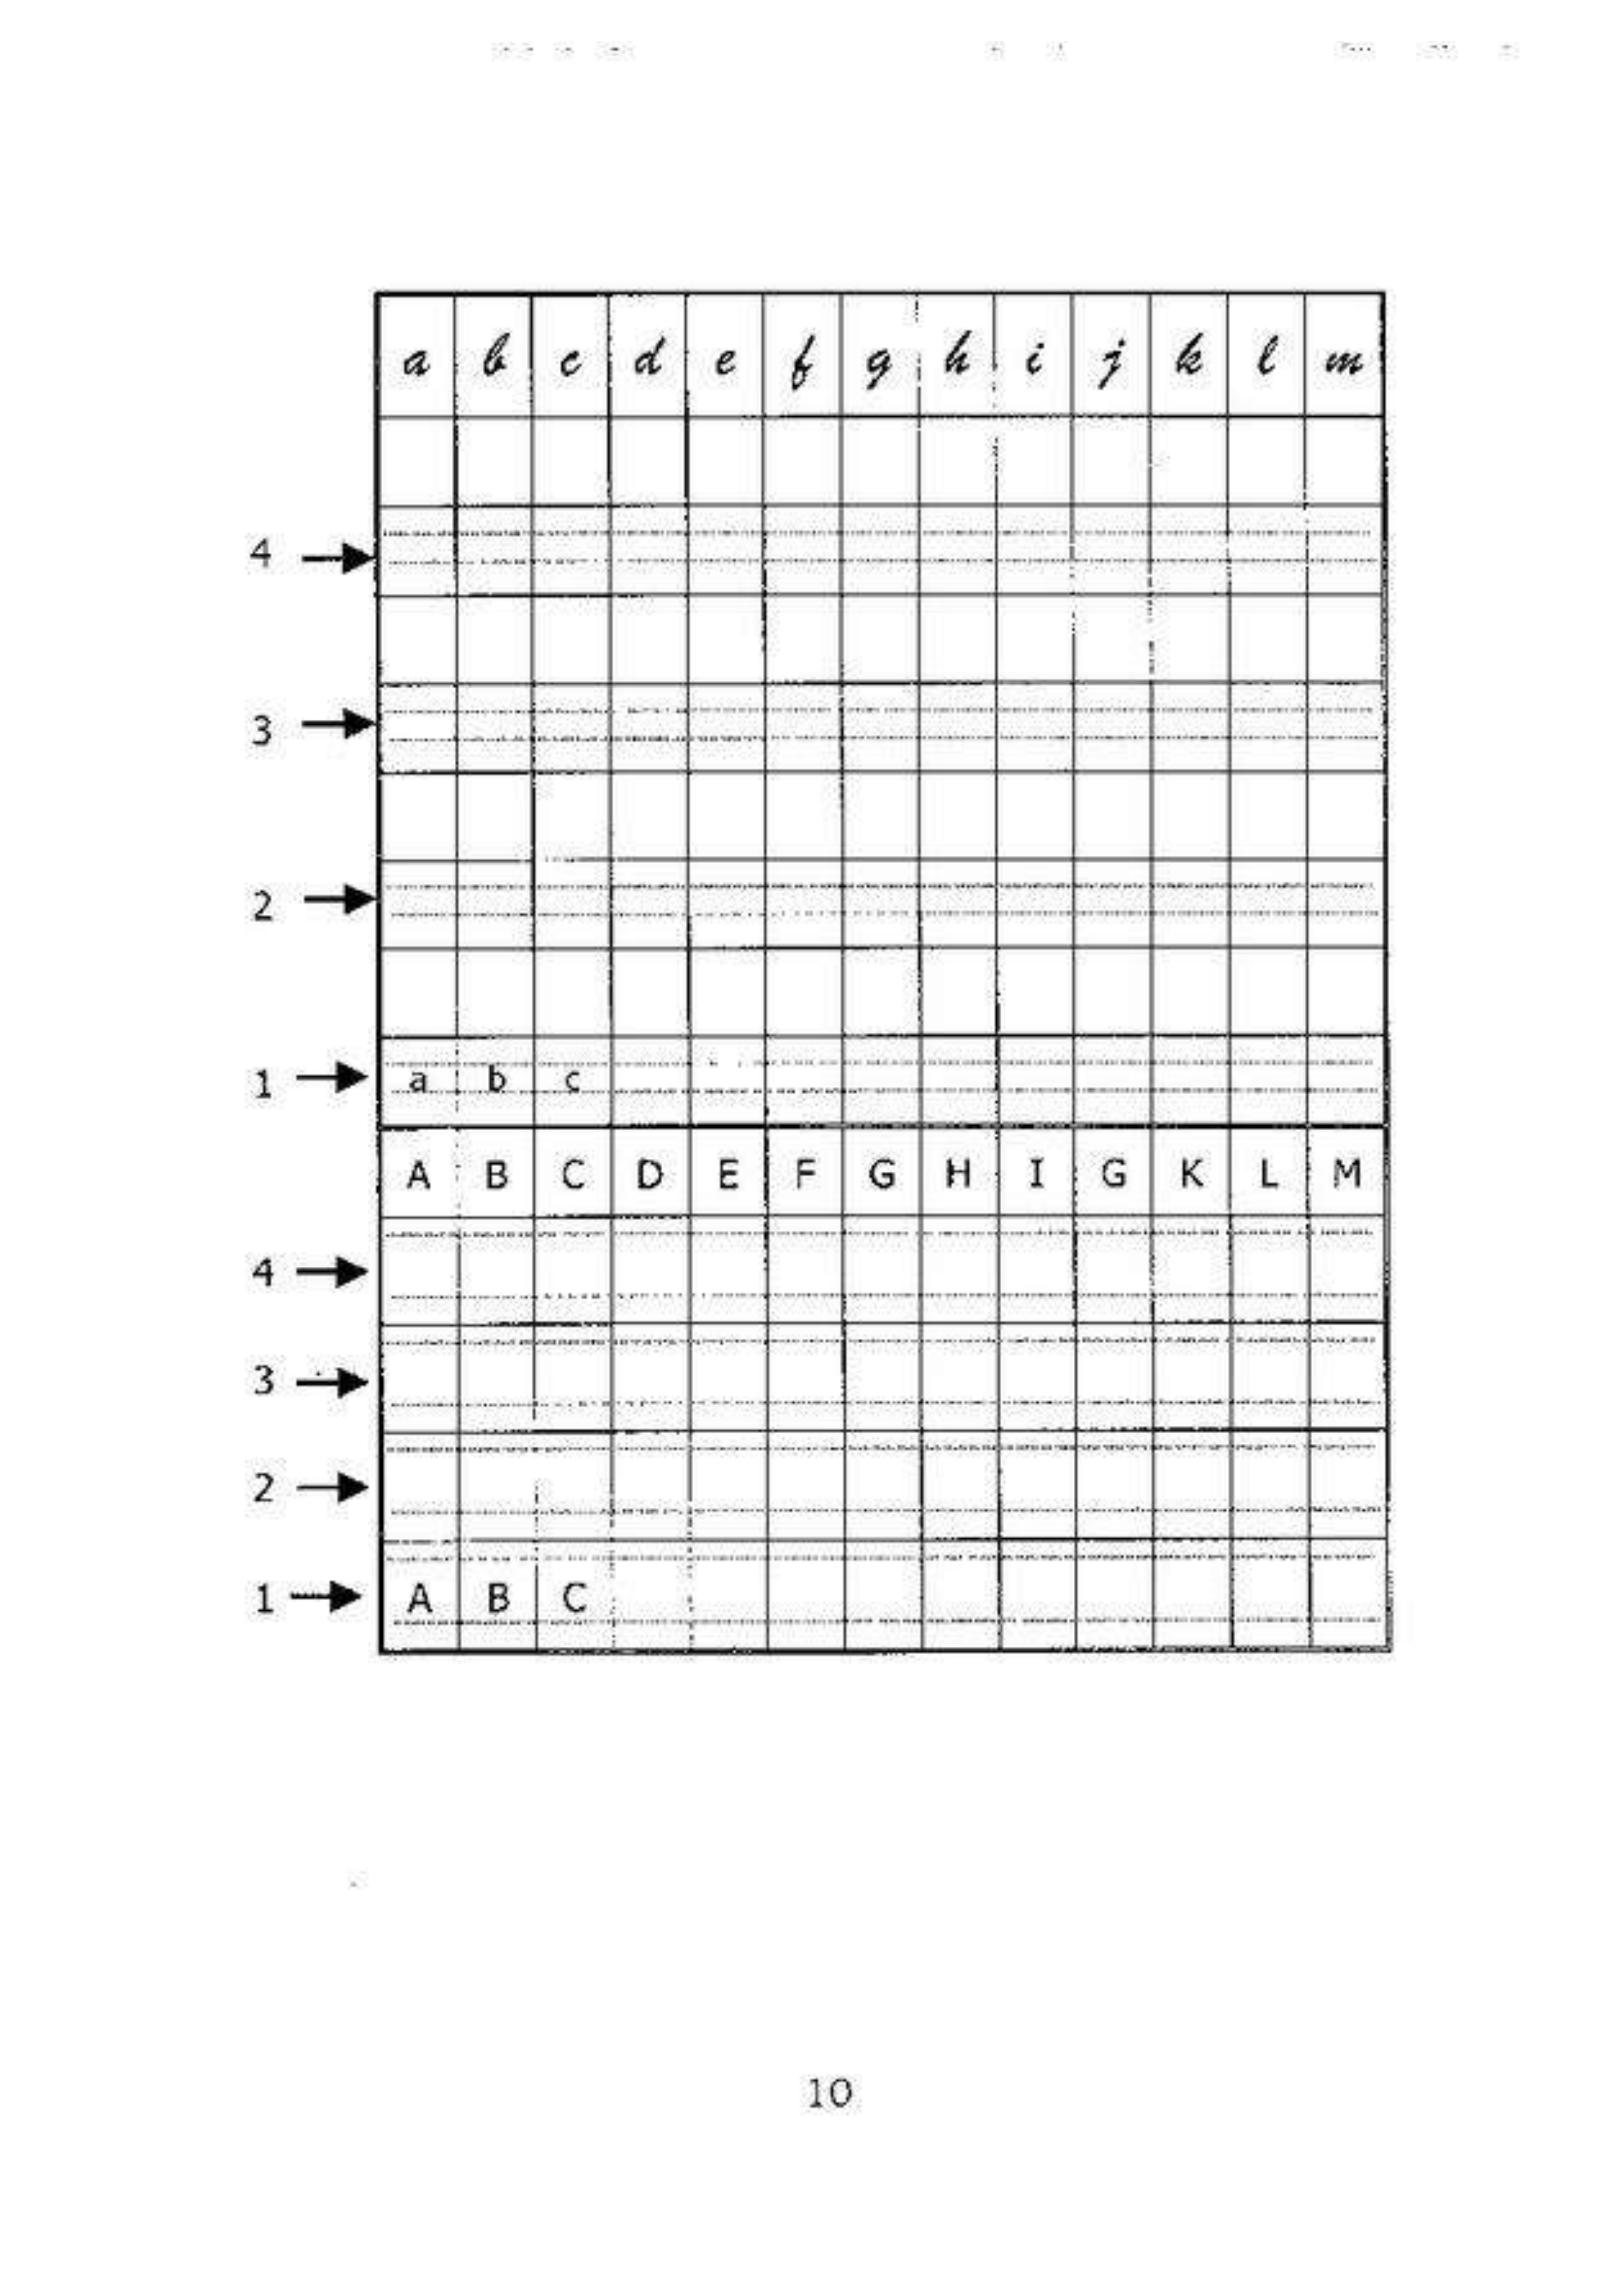 a b c d e f g h i j k l m
4
3
2
1 a b c
A B C D E F G H I G K L M
4
3
2
1 A B C
10